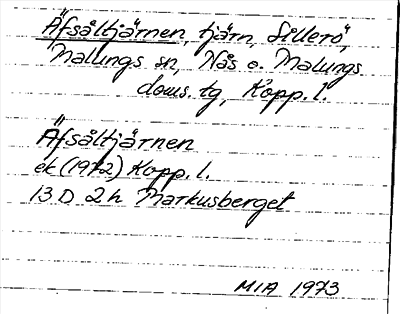 Äfsåltjärnen, tjärn, Sillerö,
Malungs sn, Nås o. Malungs
doms. tg, Kopp. l.
Äfsåltjärnen
ek (1972) Kopp. l.
13 D 2 h Markusberget
MIA 1973